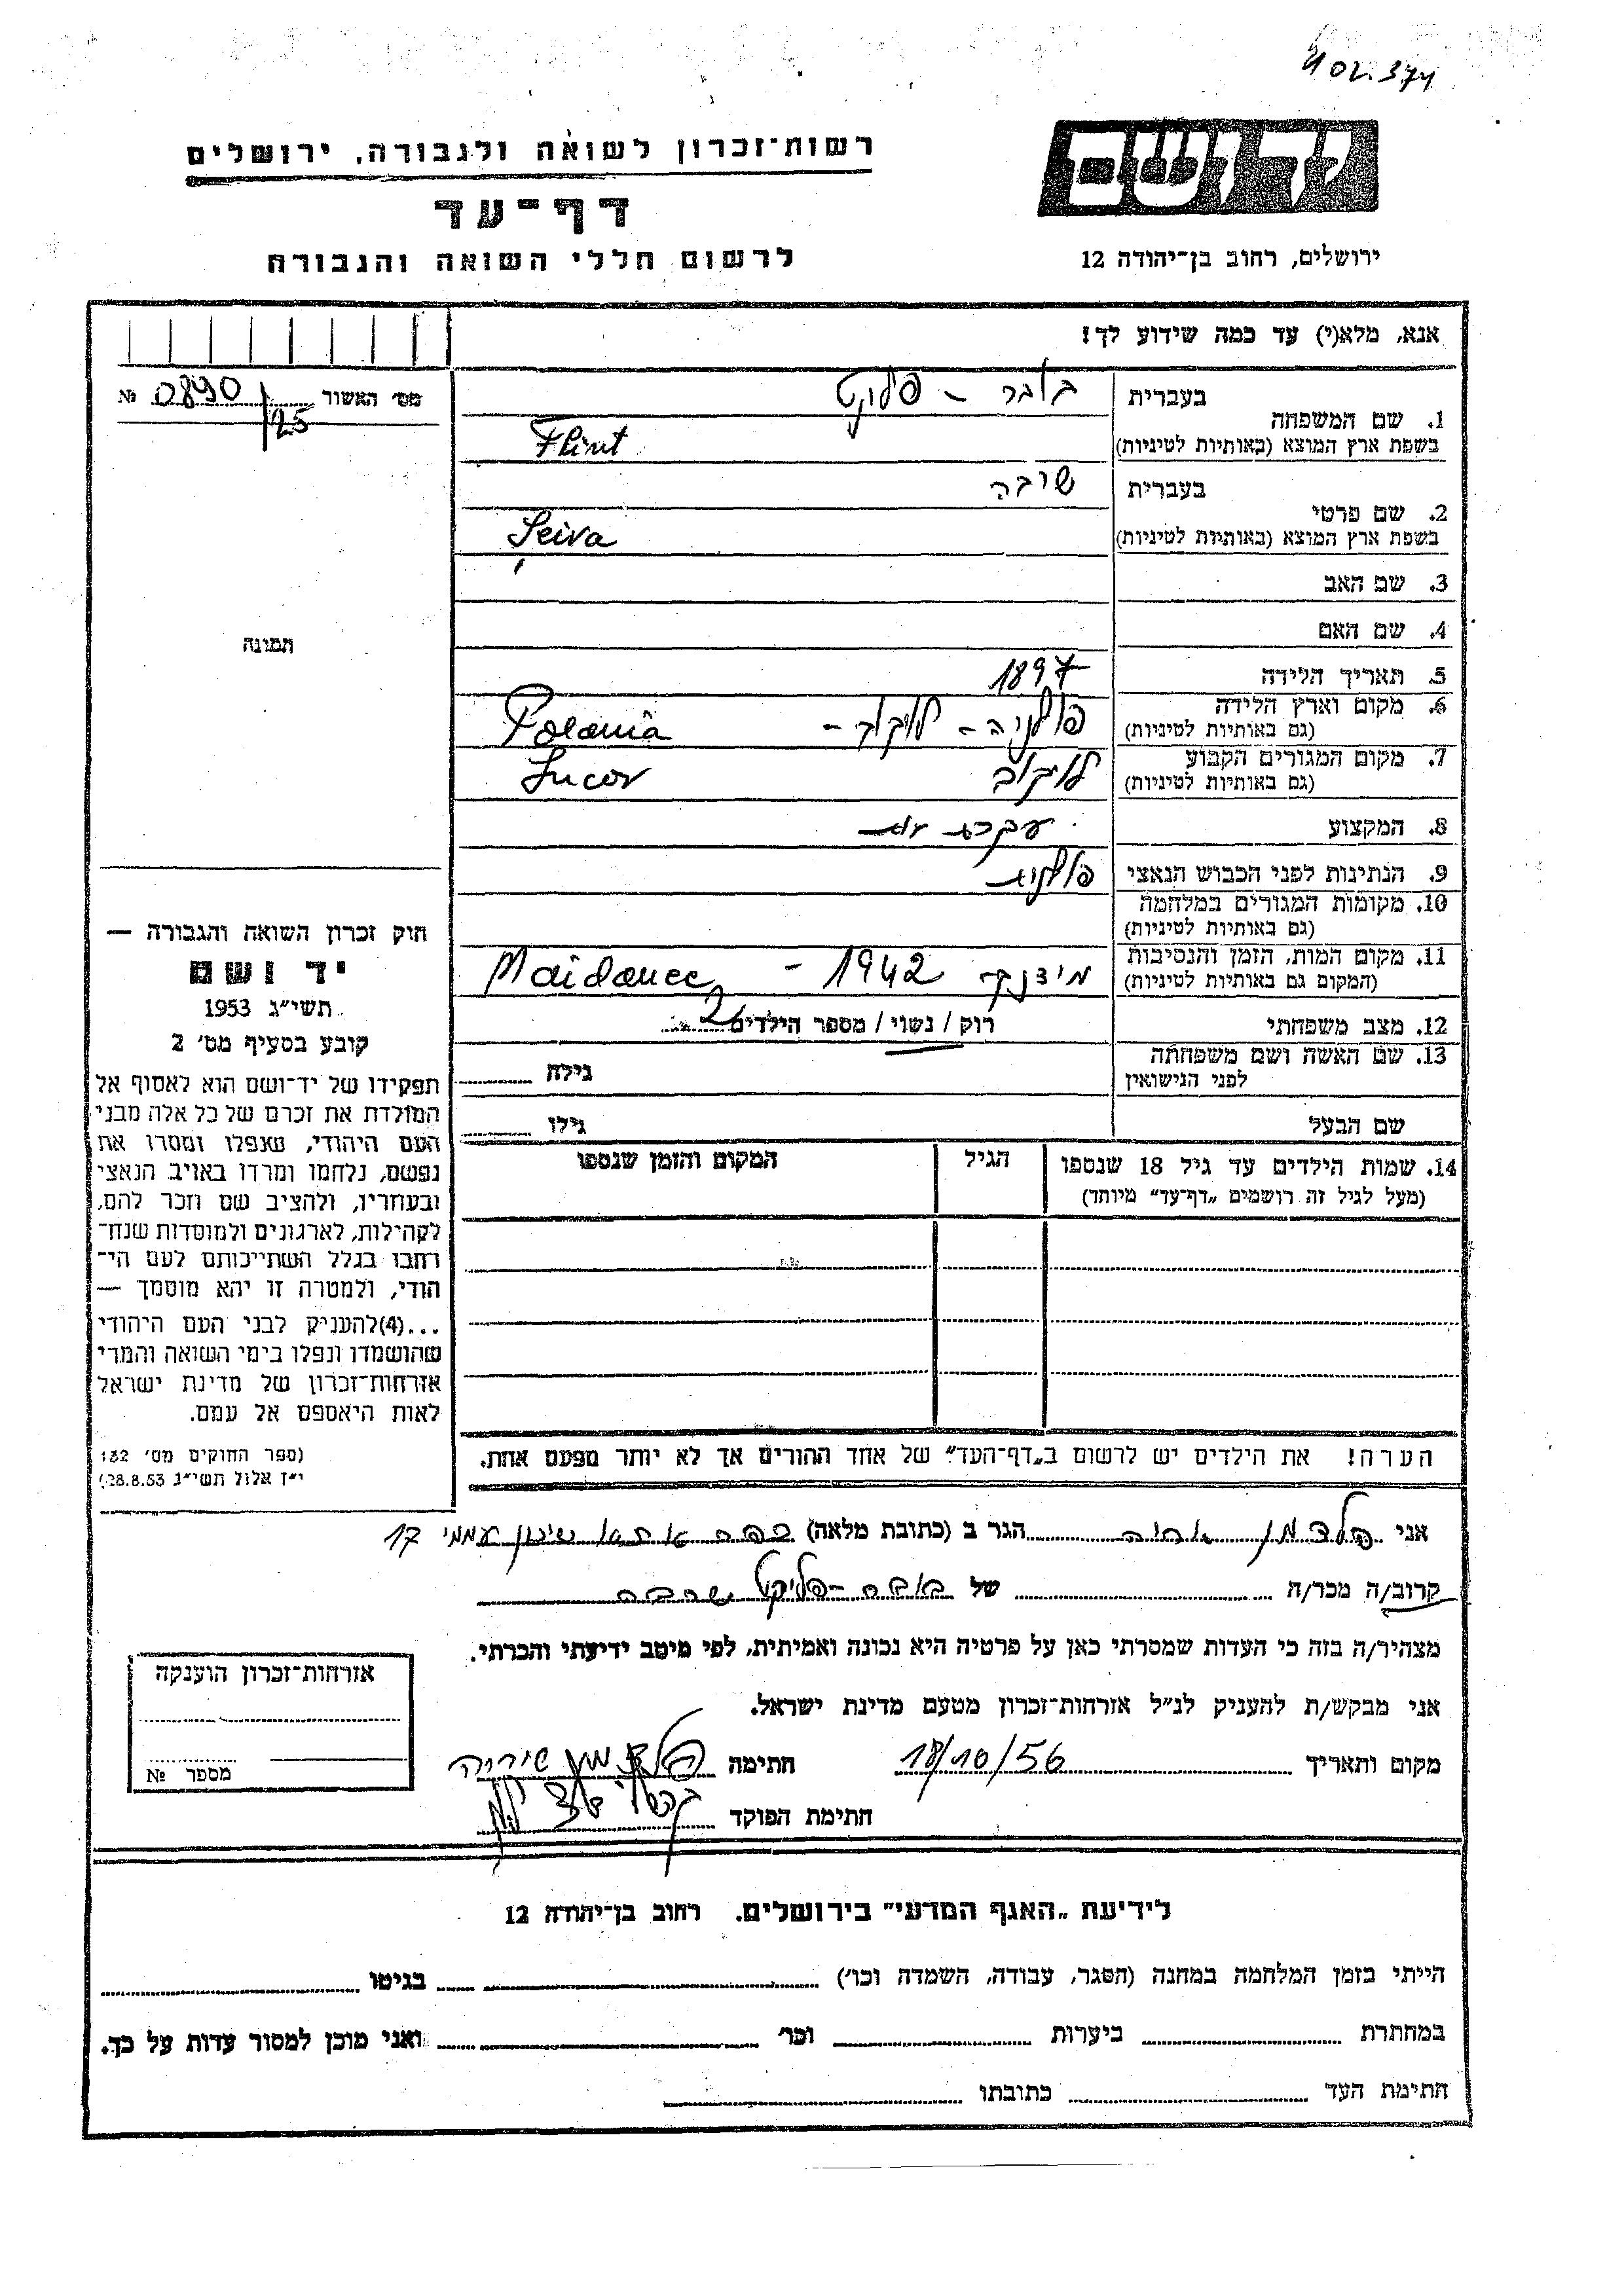 402.374
רשות־זכרון לשואה ולגבורה, ירושלים
יד ושם
דף־עד
לרשום חללי השואה והגבורה
ירושלים, רחוב בן־יהודה 12
אנא, מלא(י) עד כמה שידוע לך!
מס׳ האשור № 0890/25
1. שם המשפחה
בעברית בובר - פלוקט
בשפת ארץ המוצא (באותיות לטיניות) Flint
2. שם פרטי
בעברית שובה
בשפת ארץ המוצא (באותיות לטיניות) Șeiva
3. שם האב
4. שם האם
תמונה
5. תאריך הלידה 1897
6. מקום וארץ הלידה פולניה - לוקוב - Polania
(גם באותיות לטיניות)
7. מקום המגורים הקבוע לוקוב Lucov
(גם באותיות לטיניות)
8. המקצוע עקרת
9. הנתינות לפני הכבוש הנאצי פולנית
10. מקומות המגורים במלחמה
(גם באותיות לטיניות)
11. מקום המות, הזמן והנסיבות מידנק 1942 - Maidanec
(המקום גם באותיות לטיניות)
12. מצב משפחתי רוק / נשוי / מספר הילדים 2
13. שם האשה ושם משפחתה לפני הנישואין גילה
שם הבעל גילו
14. שמות הילדים עד גיל 18 שנספו הגיל המקום והזמן שנספו
(מעל לגיל זה רושמים „דף־עד” מיוחד)
חוק זכרון השואה והגבורה —
יד ושם
תשי״ג 1953
קובע בסעיף מס׳ 2
תפקידו של יד־ושם הוא לאסוף אל
המולדת את זכרם של כל אלה מבני
העם היהודי, שנפלו ומסרו את
נפשם, נלחמו ומרדו באויב הנאצי
ובעוזריו, ולהציב שם וזכר להם,
לקהילות, לארגונים ולמוסדות שנח־
רבו בגלל השתייכותם לעם הי־
הודי, ולמטרה זו יהא מוסמך —
...(4)להעניק לבני העם היהודי
שהושמדו ונפלו בימי השואה והמרי
אזרחות־זכרון של מדינת ישראל
לאות היאספם אל עמם.
(ספר החוקים מס׳ 132
י״ז אלול תשי״ג 28.8.53)
הערה! את הילדים יש לרשום ב„דף־העד” של אחד ההורים אך לא יותר מפעם אחת.
אני הגר ב (כתובת מלאה) כפר אתא שיכון עממי 17
קרוב/ה מכר/ה של בובר - פליקט שובה
מצהיר/ה בזה כי העדות שמסרתי כאן על פרטיה היא נכונה ואמיתית, לפי מיטב ידיעתי והכרתי.
אני מבקש/ת להעניק לנ״ל אזרחות־זכרון מטעם מדינת ישראל.
מקום ותאריך 18/10/56 חתימה
חתימת הפוקד
אזרחות־זכרון הוענקה
מספר №
לידיעת „האגף המדעי” בירושלים. רחוב בן־יהודה 12
הייתי בזמן המלחמה במחנה (הסגר, עבודה, השמדה וכו׳) בגיטו
במחתרת ביערות וכו׳ ואני מוכן למסור עדות על כך.
חתימת העד כתובתו